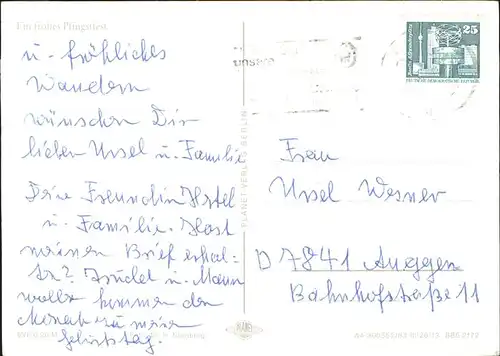 Ein frohes Pfingstfest
u. fröhliches
Wandern
wünschen Dir
lieben Ursel u. Familie
Deine Freundin
u. Familie. Hast
meinen Brief erhal-
ten? Trudel u. Mann
wollte kommen den
Monat zu meine
Geburtstag.
PLANET-VERLAG BERLIN
25
DEUTSCHE DEMOKRATISCHE REPUBLIK
Frau
Ursel Werner
D 7841 Auggen
Bahnhofstraße 11